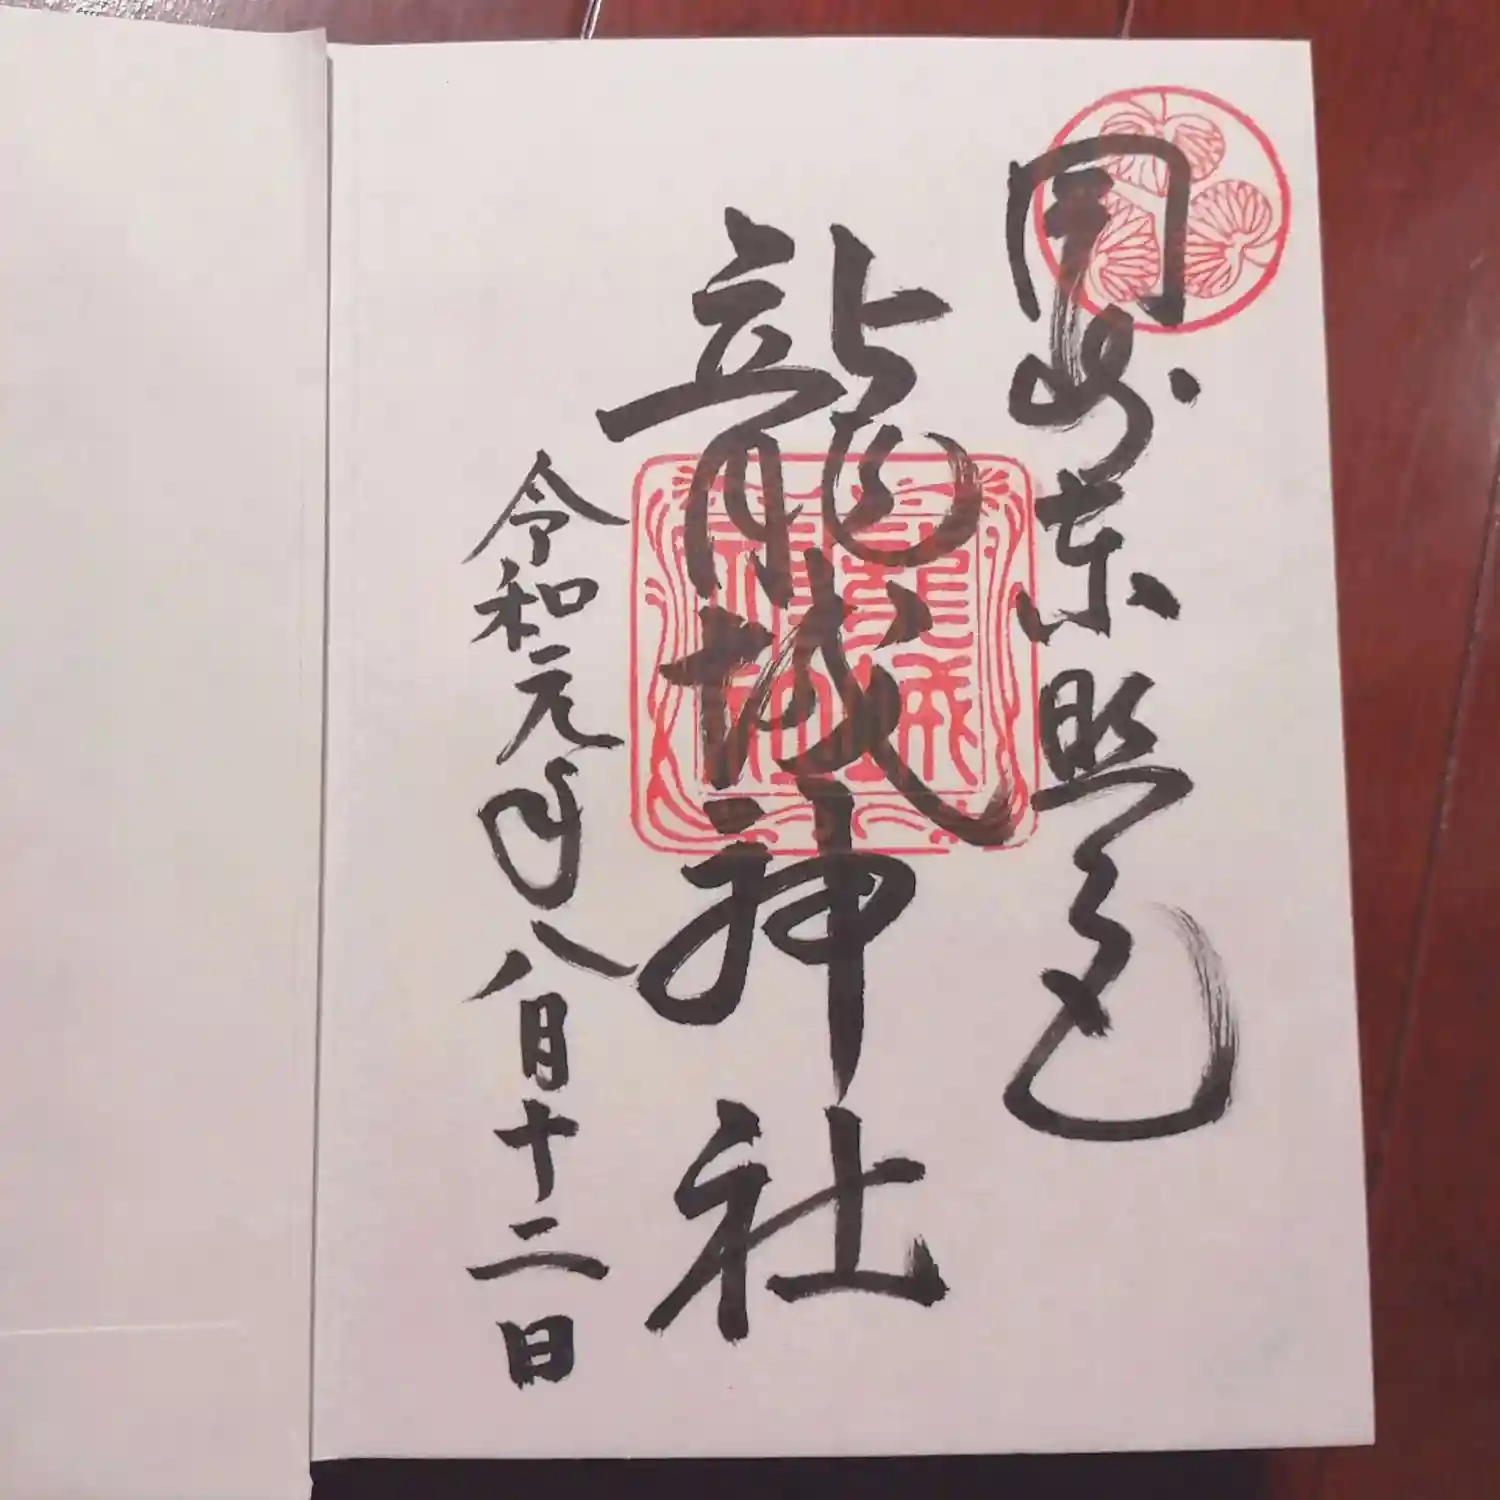 岡崎東照宮
龍城神社
令和元年八月十二日
龍城神社